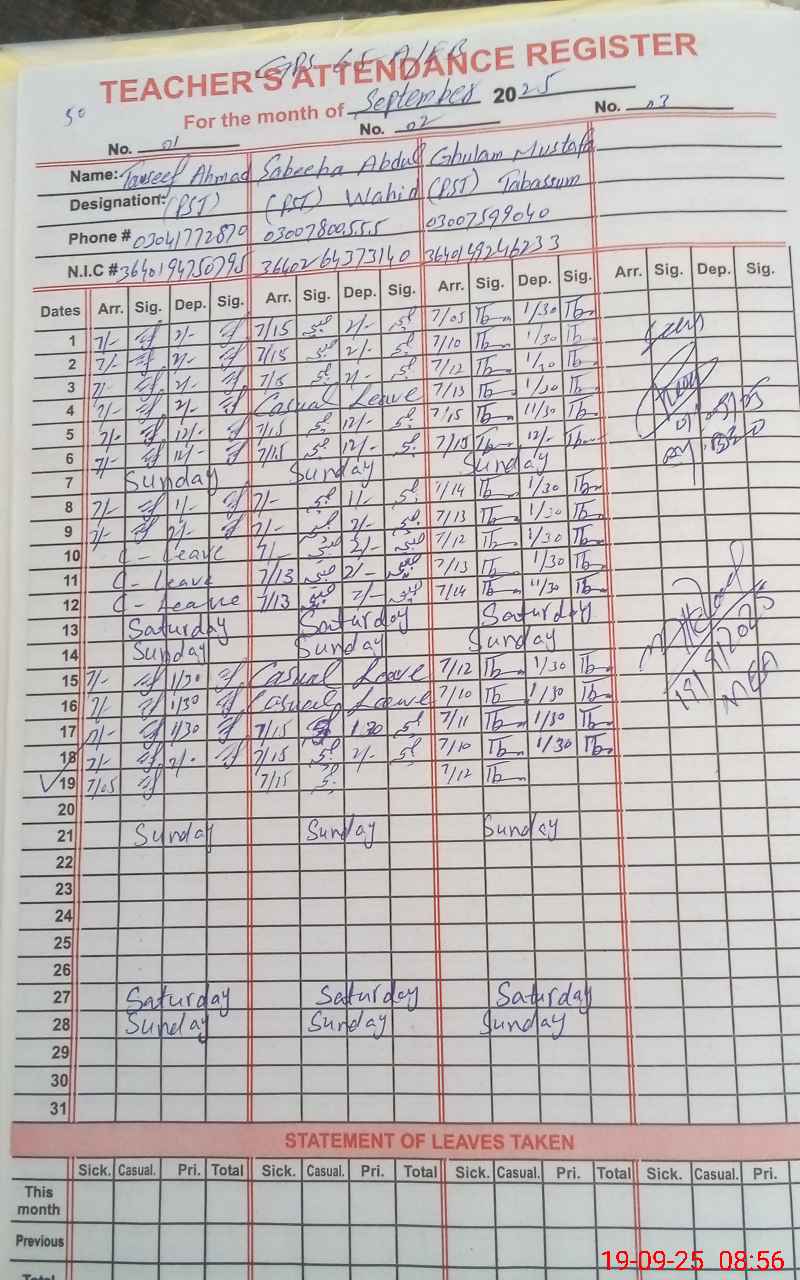 GPS 65 A/EB
TEACHER'S ATTENDANCE REGISTER
50
For the month of September 2025
No. 01 No. 02 No. 03
Name: Tauseef Ahmad Sabeeha Abdul Ghulam Mustafa
Designation: (PST) (PST) Wahid (PST) Tabassum
Phone # 03041772870 03007800555 03007599040
N.I.C # 3640194750795 3640264373140 3640149246233
Dates Arr. Sig. Dep. Sig. Arr. Sig. Dep. Sig. Arr. Sig. Dep. Sig. Arr. Sig. Dep. Sig.
1 7/- 2/- 7/15 2/- 7/05 1/30
2 7/- 2/- 7/15 2/- 7/10 1/30
3 7/- 2/- 7/15 2/- 7/12 1/30
4 7/- 2/- Casual Leave 7/13 1/30
5 7/- 12/- 7/15 12/- 7/15 11/30
6 7/- 12/- 7/15 12/- 7/15 12/-
7 Sunday Sunday Sunday
8 7/- 1/- 7/- 1/- 7/14 1/30
9 7/- 2/- 7/- 2/- 7/13 1/30
10 C-Leave 7/- 2/- 7/12 1/30
11 C-Leave 7/13 2/- 7/13 1/30
12 C-Leave 7/13 7/14 11/30
13 Saturday Saturday Saturday
14 Sunday Sunday Sunday
15 7/- 1/30 Casual Leave 7/12 1/30
16 7/- 1/30 Casual Leave 7/10 1/30
17 7/- 1/30 7/15 1 30 7/11 1/30
18 7/- 2/- 7/15 2/- 7/10 1/30
19 7/05 7/15 7/12
19/9/2025
MEA
20
21 Sunday Sunday Sunday
22
23
24
25
26
27 Saturday Saturday Saturday
28 Sunday Sunday Sunday
29
30
31
STATEMENT OF LEAVES TAKEN
Sick. Casual. Pri. Total Sick. Casual. Pri. Total Sick. Casual. Pri. Total Sick. Casual. Pri.
This
month
Previous
Total
19-09-25 08:56